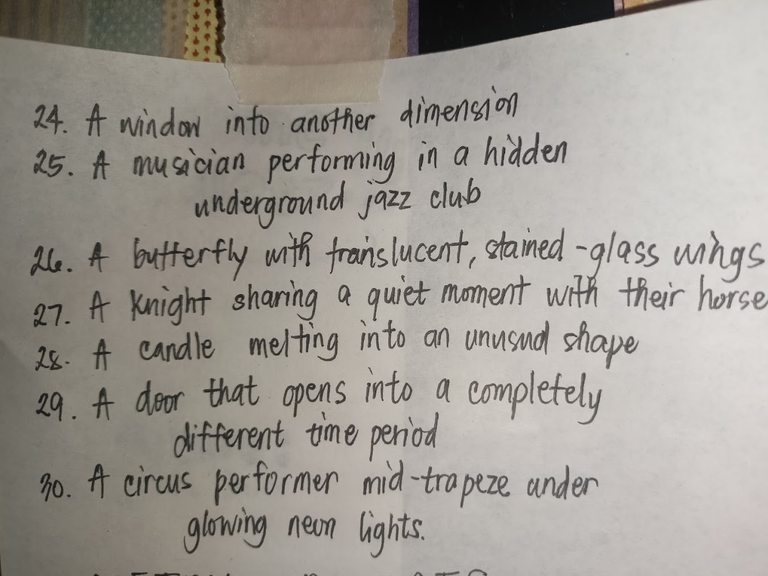 24. A window into another dimension
25. A musician performing in a hidden
underground jazz club
26. A butterfly with translucent, stained-glass wings
27. A knight sharing a quiet moment with their horse
28. A candle melting into an unusual shape
29. A door that opens into a completely
different time period
30. A circus performer mid-trapeze under
glowing neon lights.